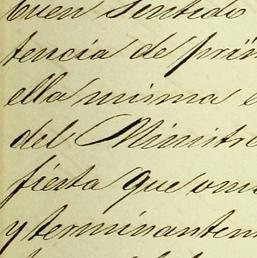 buen sentido
tencia de prin
ella misma e
del Ministro
fiesta que om
y terminantem